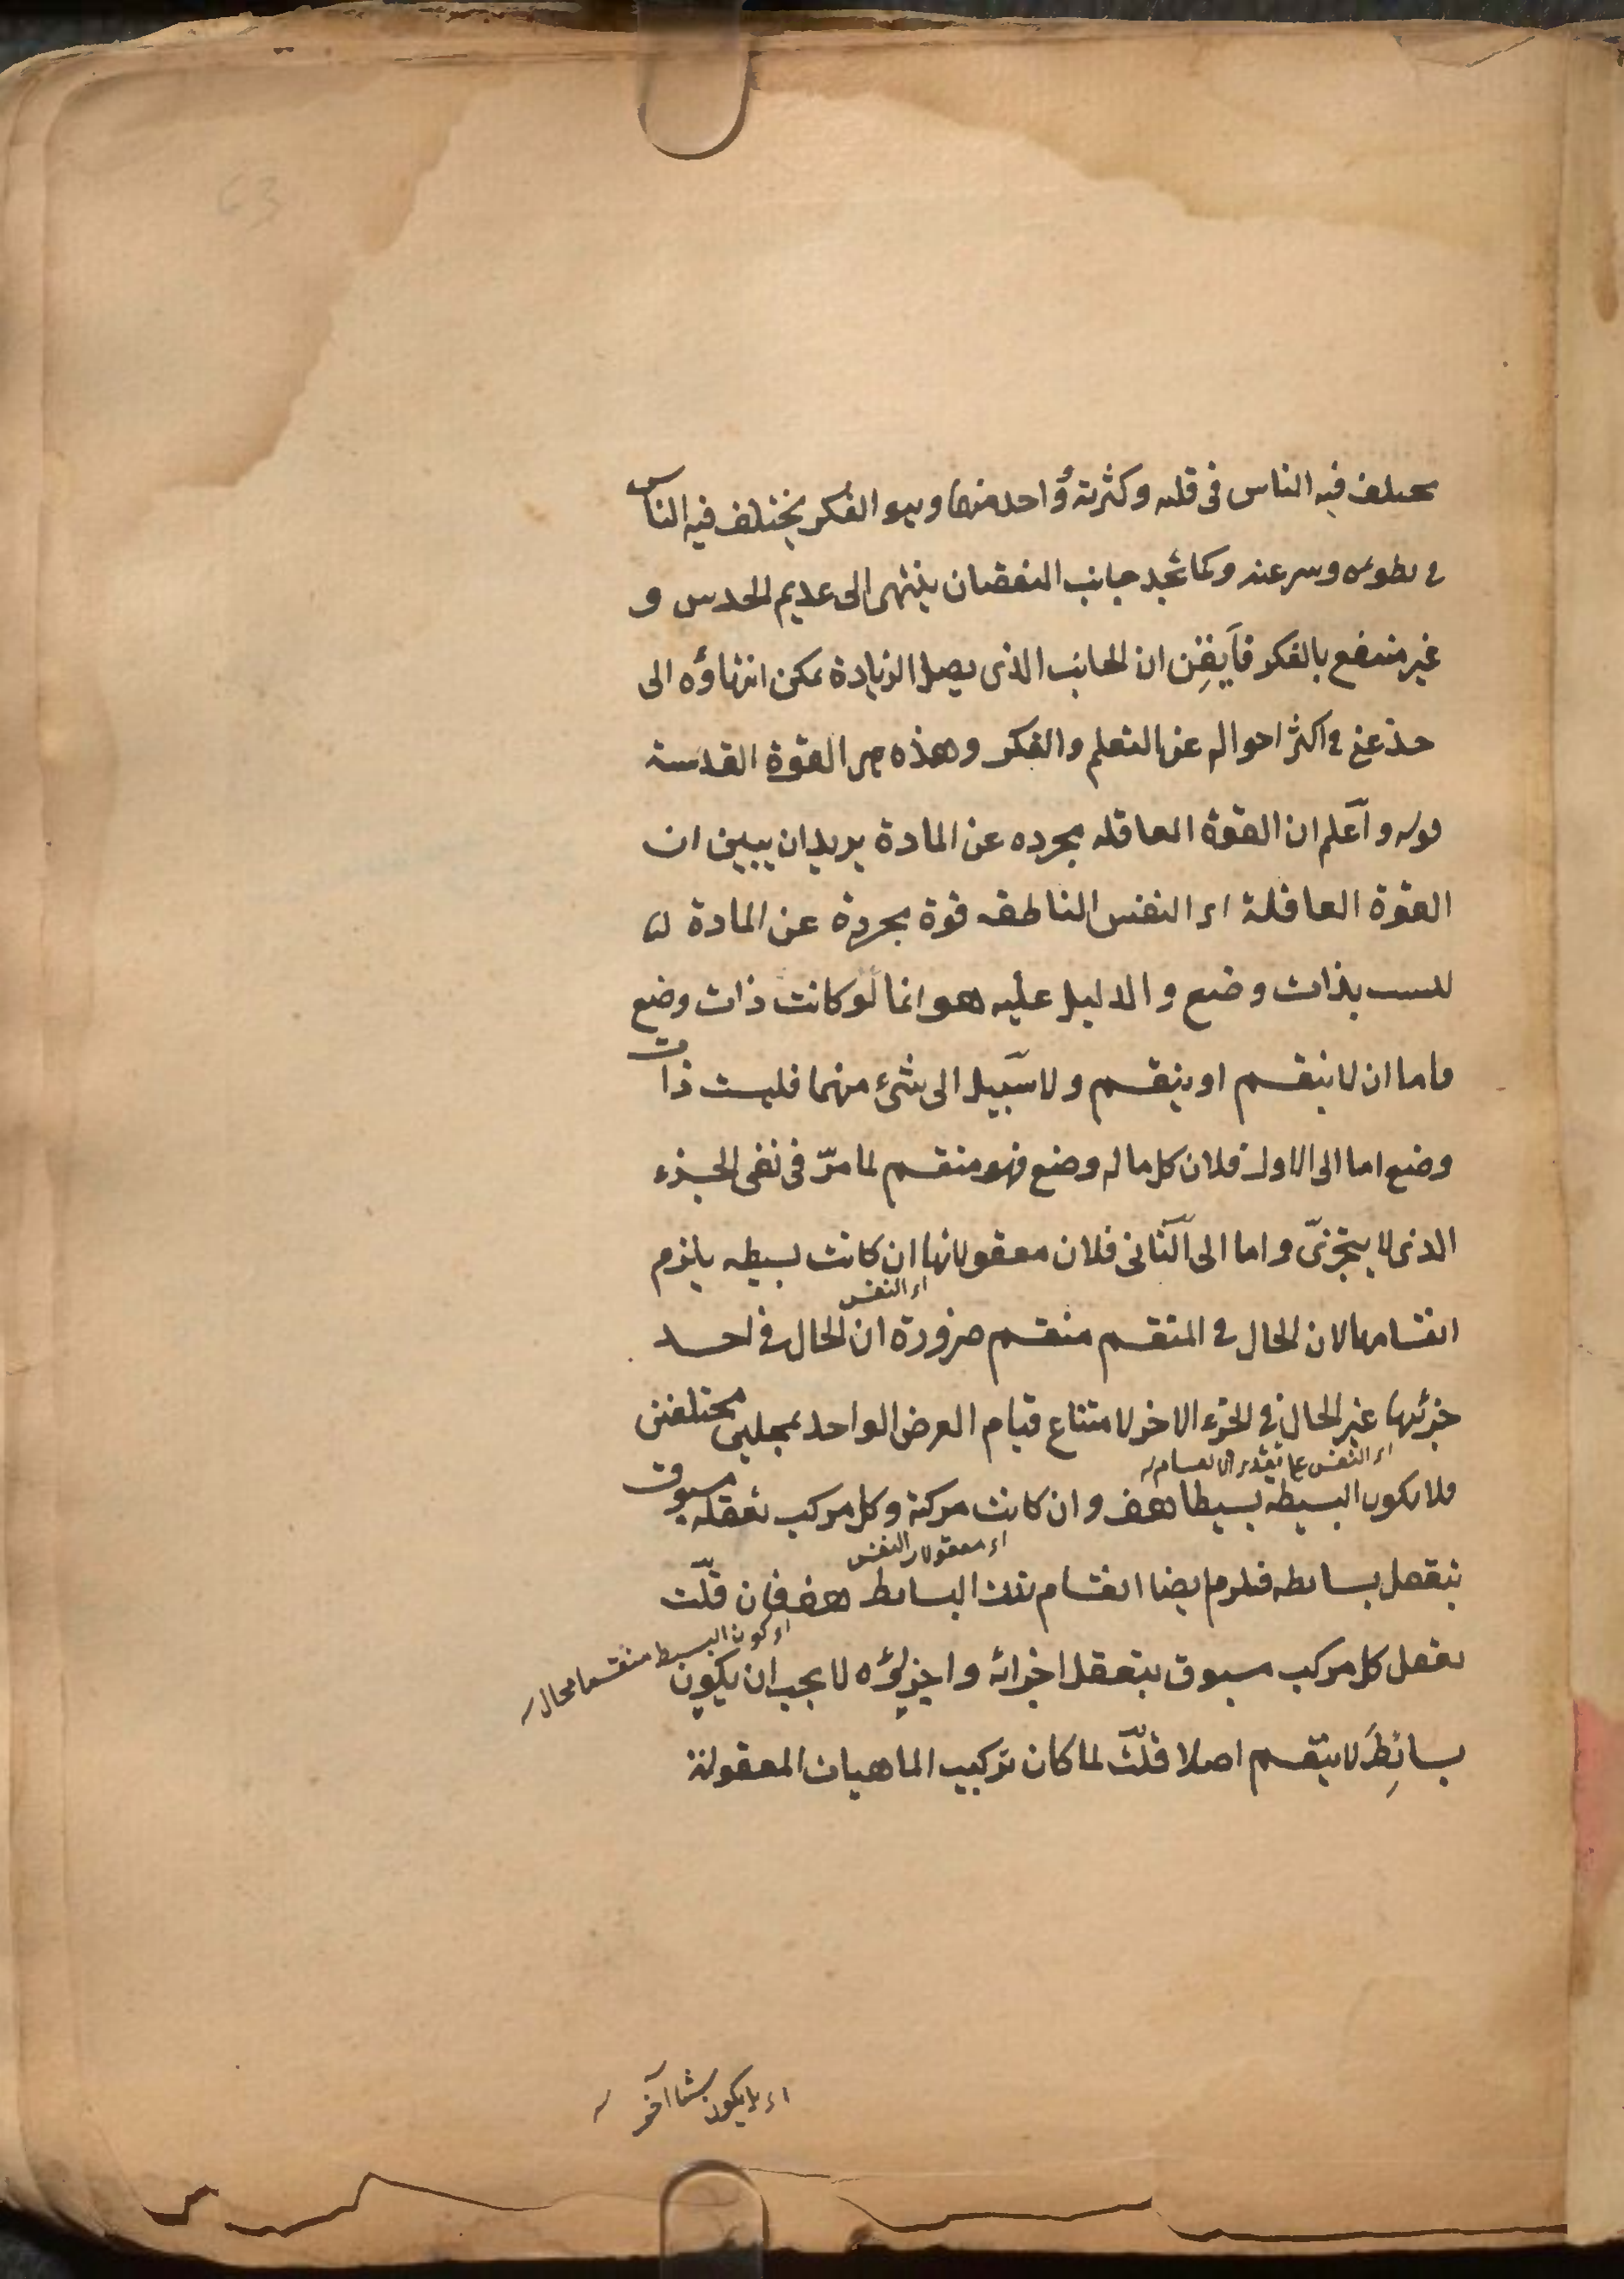 يختلف فيه الناس فى قلته وكثرته واحد منها وهو الفكر يختلف فيه الناس
فى بطوئه وسرعته وكما تجد جانب النقصان ينتهى الى عديم الحدس و
غير منتفع بالفكر فايقن ان الجانب الذى يصل الزيادة يمكن انتهاؤه الى
حد غنى فى اكثر احواله عن التعلم والفكر وهذه هى القوة القدسية
قوله واعلم ان القوة العاقله مجرده عن المادة يريد ان يبين ان
القوة العاقلة اى النفس الناطقه قوة مجردة عن المادة اى
ليست بذات وضع والدليل عليه هو انها لو كانت ذات وضع
فاما ان لا ينقسم او ينقسم ولا سبيل الى شىء منهما فليست ذات
وضع اما الى الاول فلان كل ما له وضع فهو منقسم لما مرّ فى نفى الجزء
الذى لا يتجزىّ واما الى الثانى فلان معقولاتها ان كانت بسيطه يلزم
اى النفس
انقسامها لان الحال فى المنقسم منقسم ضرورة ان الحال فى احد
جزئيها غير الحال فى الجزء الاخر لامتناع قيام العرض الواحد بمحلين مختلفين
اى النفس على تقدير انقسامه
فلا يكون البسيطه بسيطا هف وان كانت مركبة وكل مركب تعقله مسبوق
اى معقولات النفس
بتعقل بسائطه فيلزم ايضا انقسام تلك البسائط هف فان قلّت
اى كون البسيط منقسما محال
تعقل كل مركب مسبوق بتعقل اجزائه واجزاؤه لا يجب ان يكون
بسائط لا ينقسم اصلا قلّت لما كان تركيب الماهيات المعقولة
اى لا يكون شيئا آخر